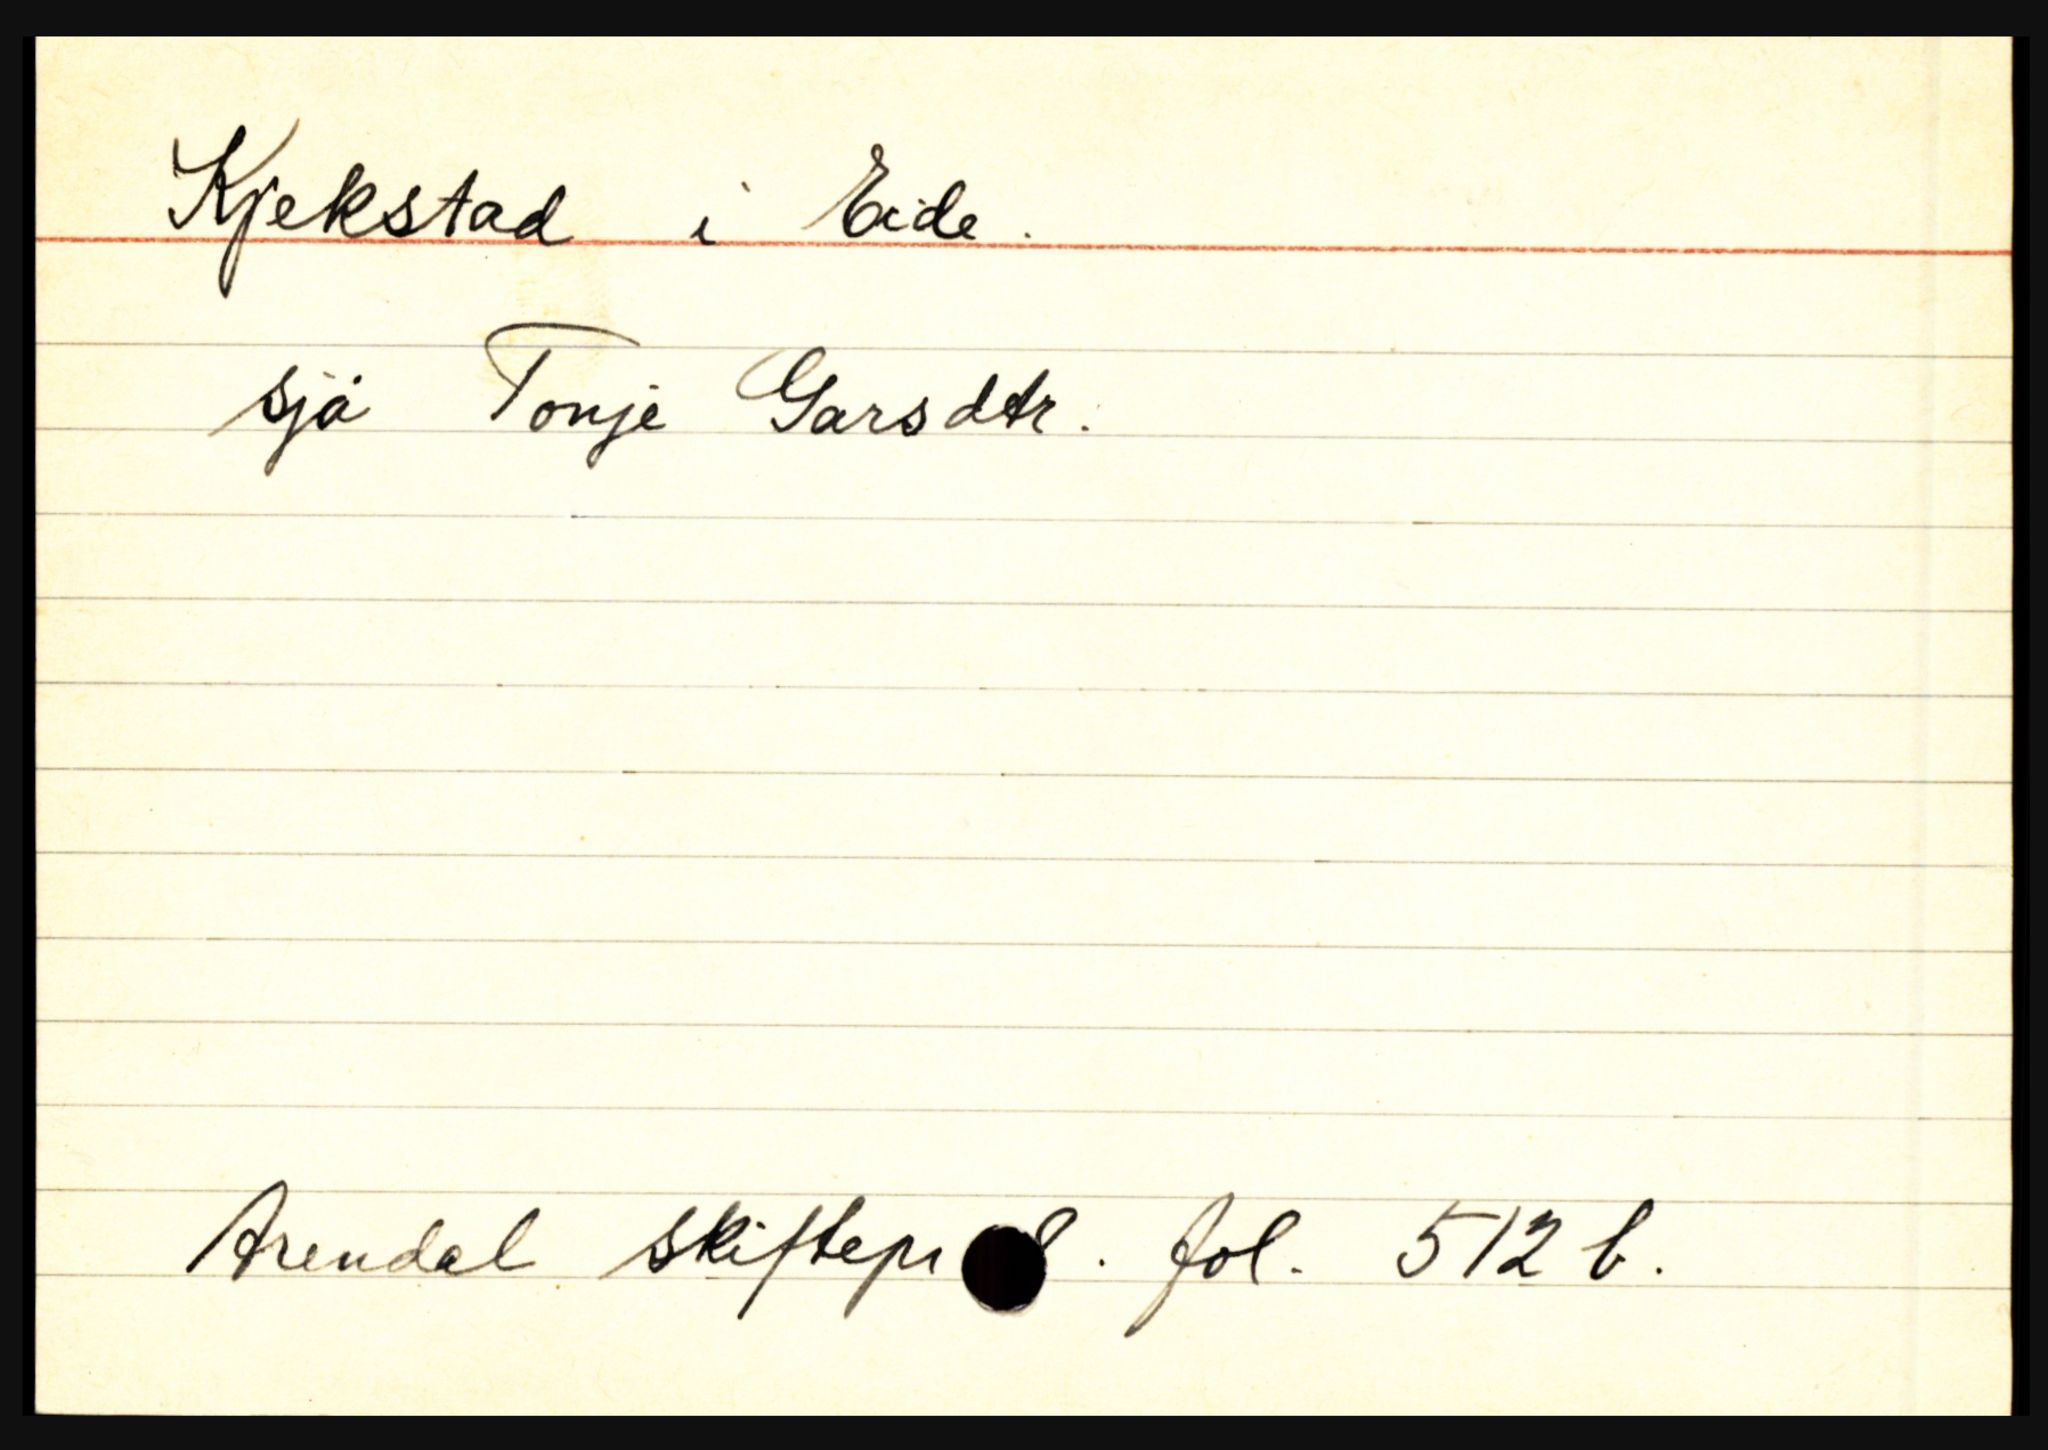 Kjekstad i Eide.
sjå Tonje Garsdtr.
Arendal skiftepr 8. fol. 512 b.